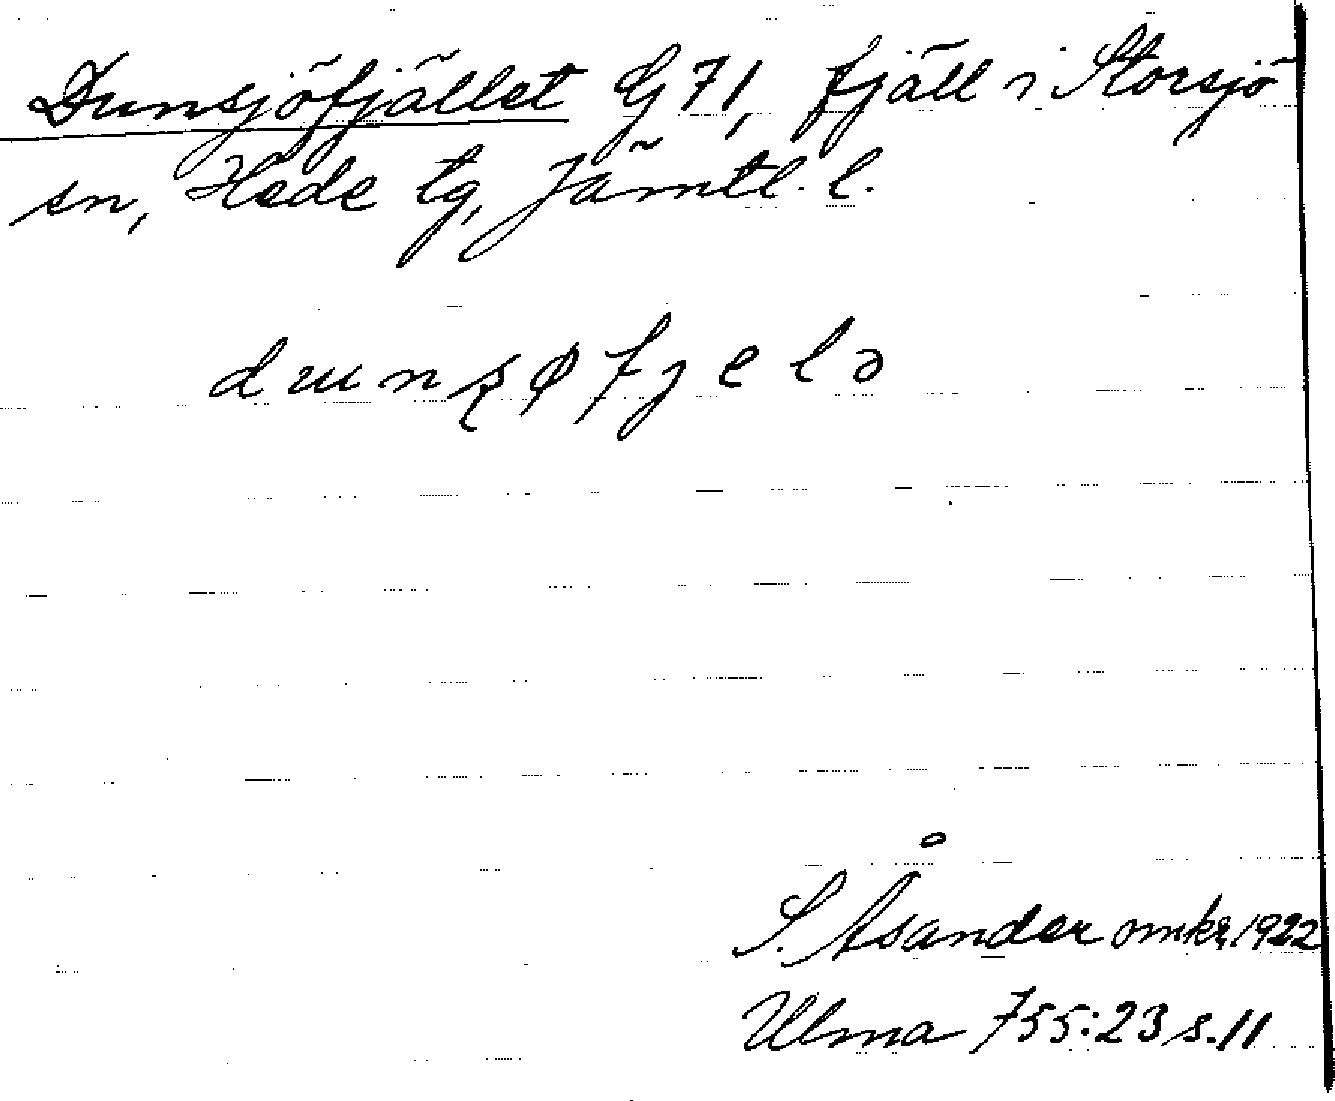 Dunsjöfjället G 71, fjäll i Storsjö
sn, Hede tg, Jämtl. l.
dɯnʂøfjelə
S. Åsander omkr. 1922
Ulma 755:23 s. 11